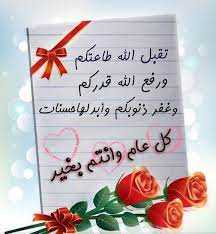 تقبل الله طاعتكم
ورفع الله قدركم
وغفر ذنوبكم وابدلها حسنات
كل عام وانتم بخير